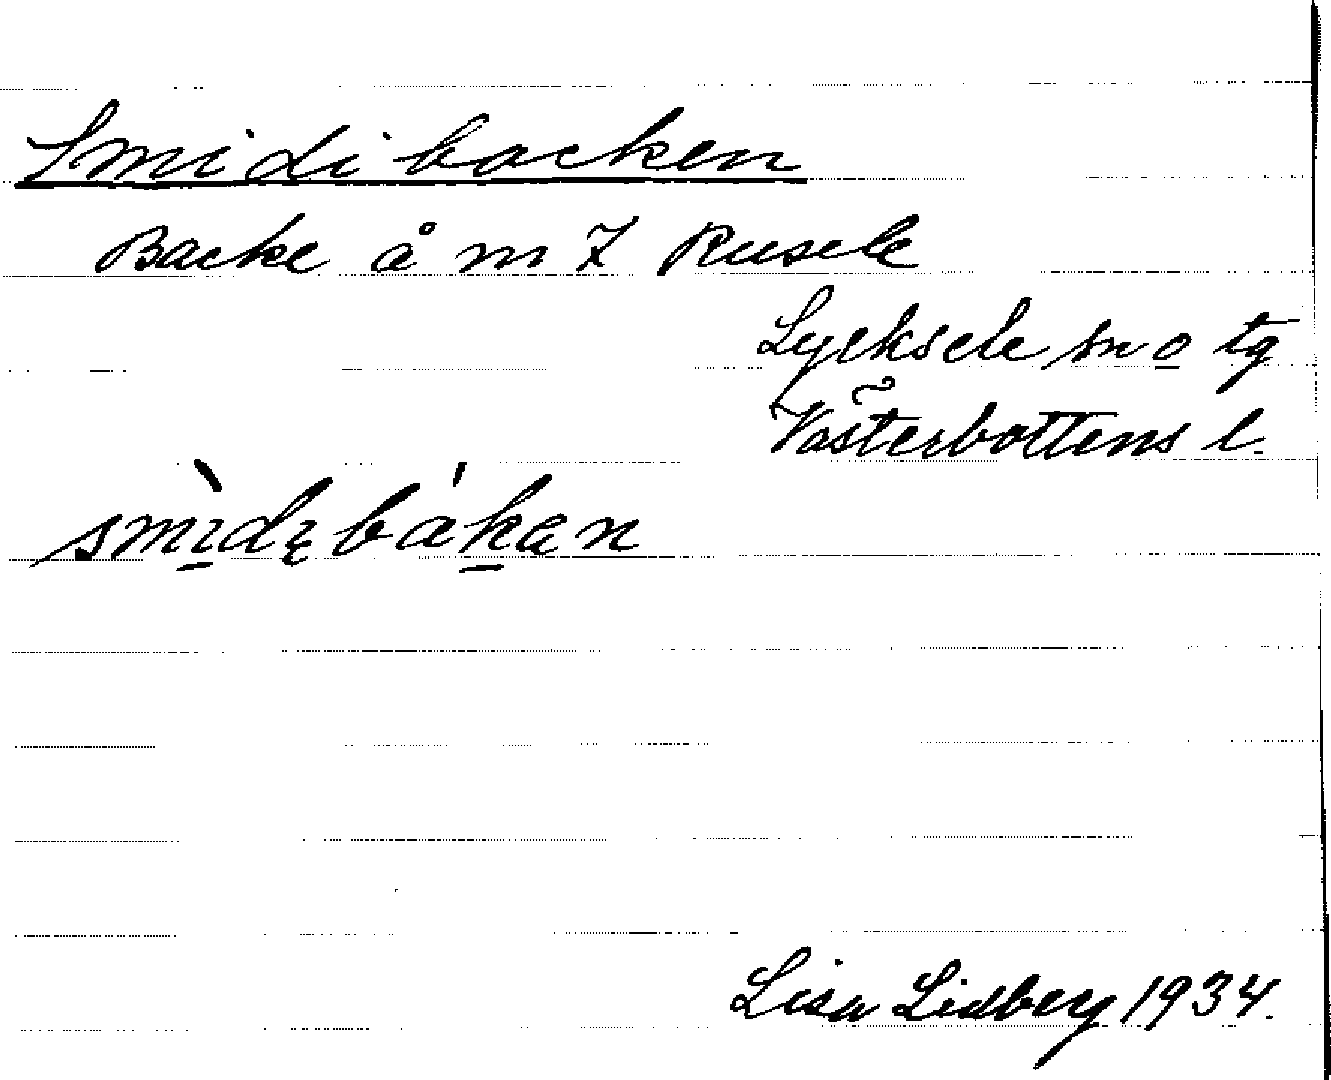 Smidibacken
Backe å m 7 Rusele
Lycksele sn o tg
Västerbottens l.
smìdębákæn
Lisa Lidberg 1934.